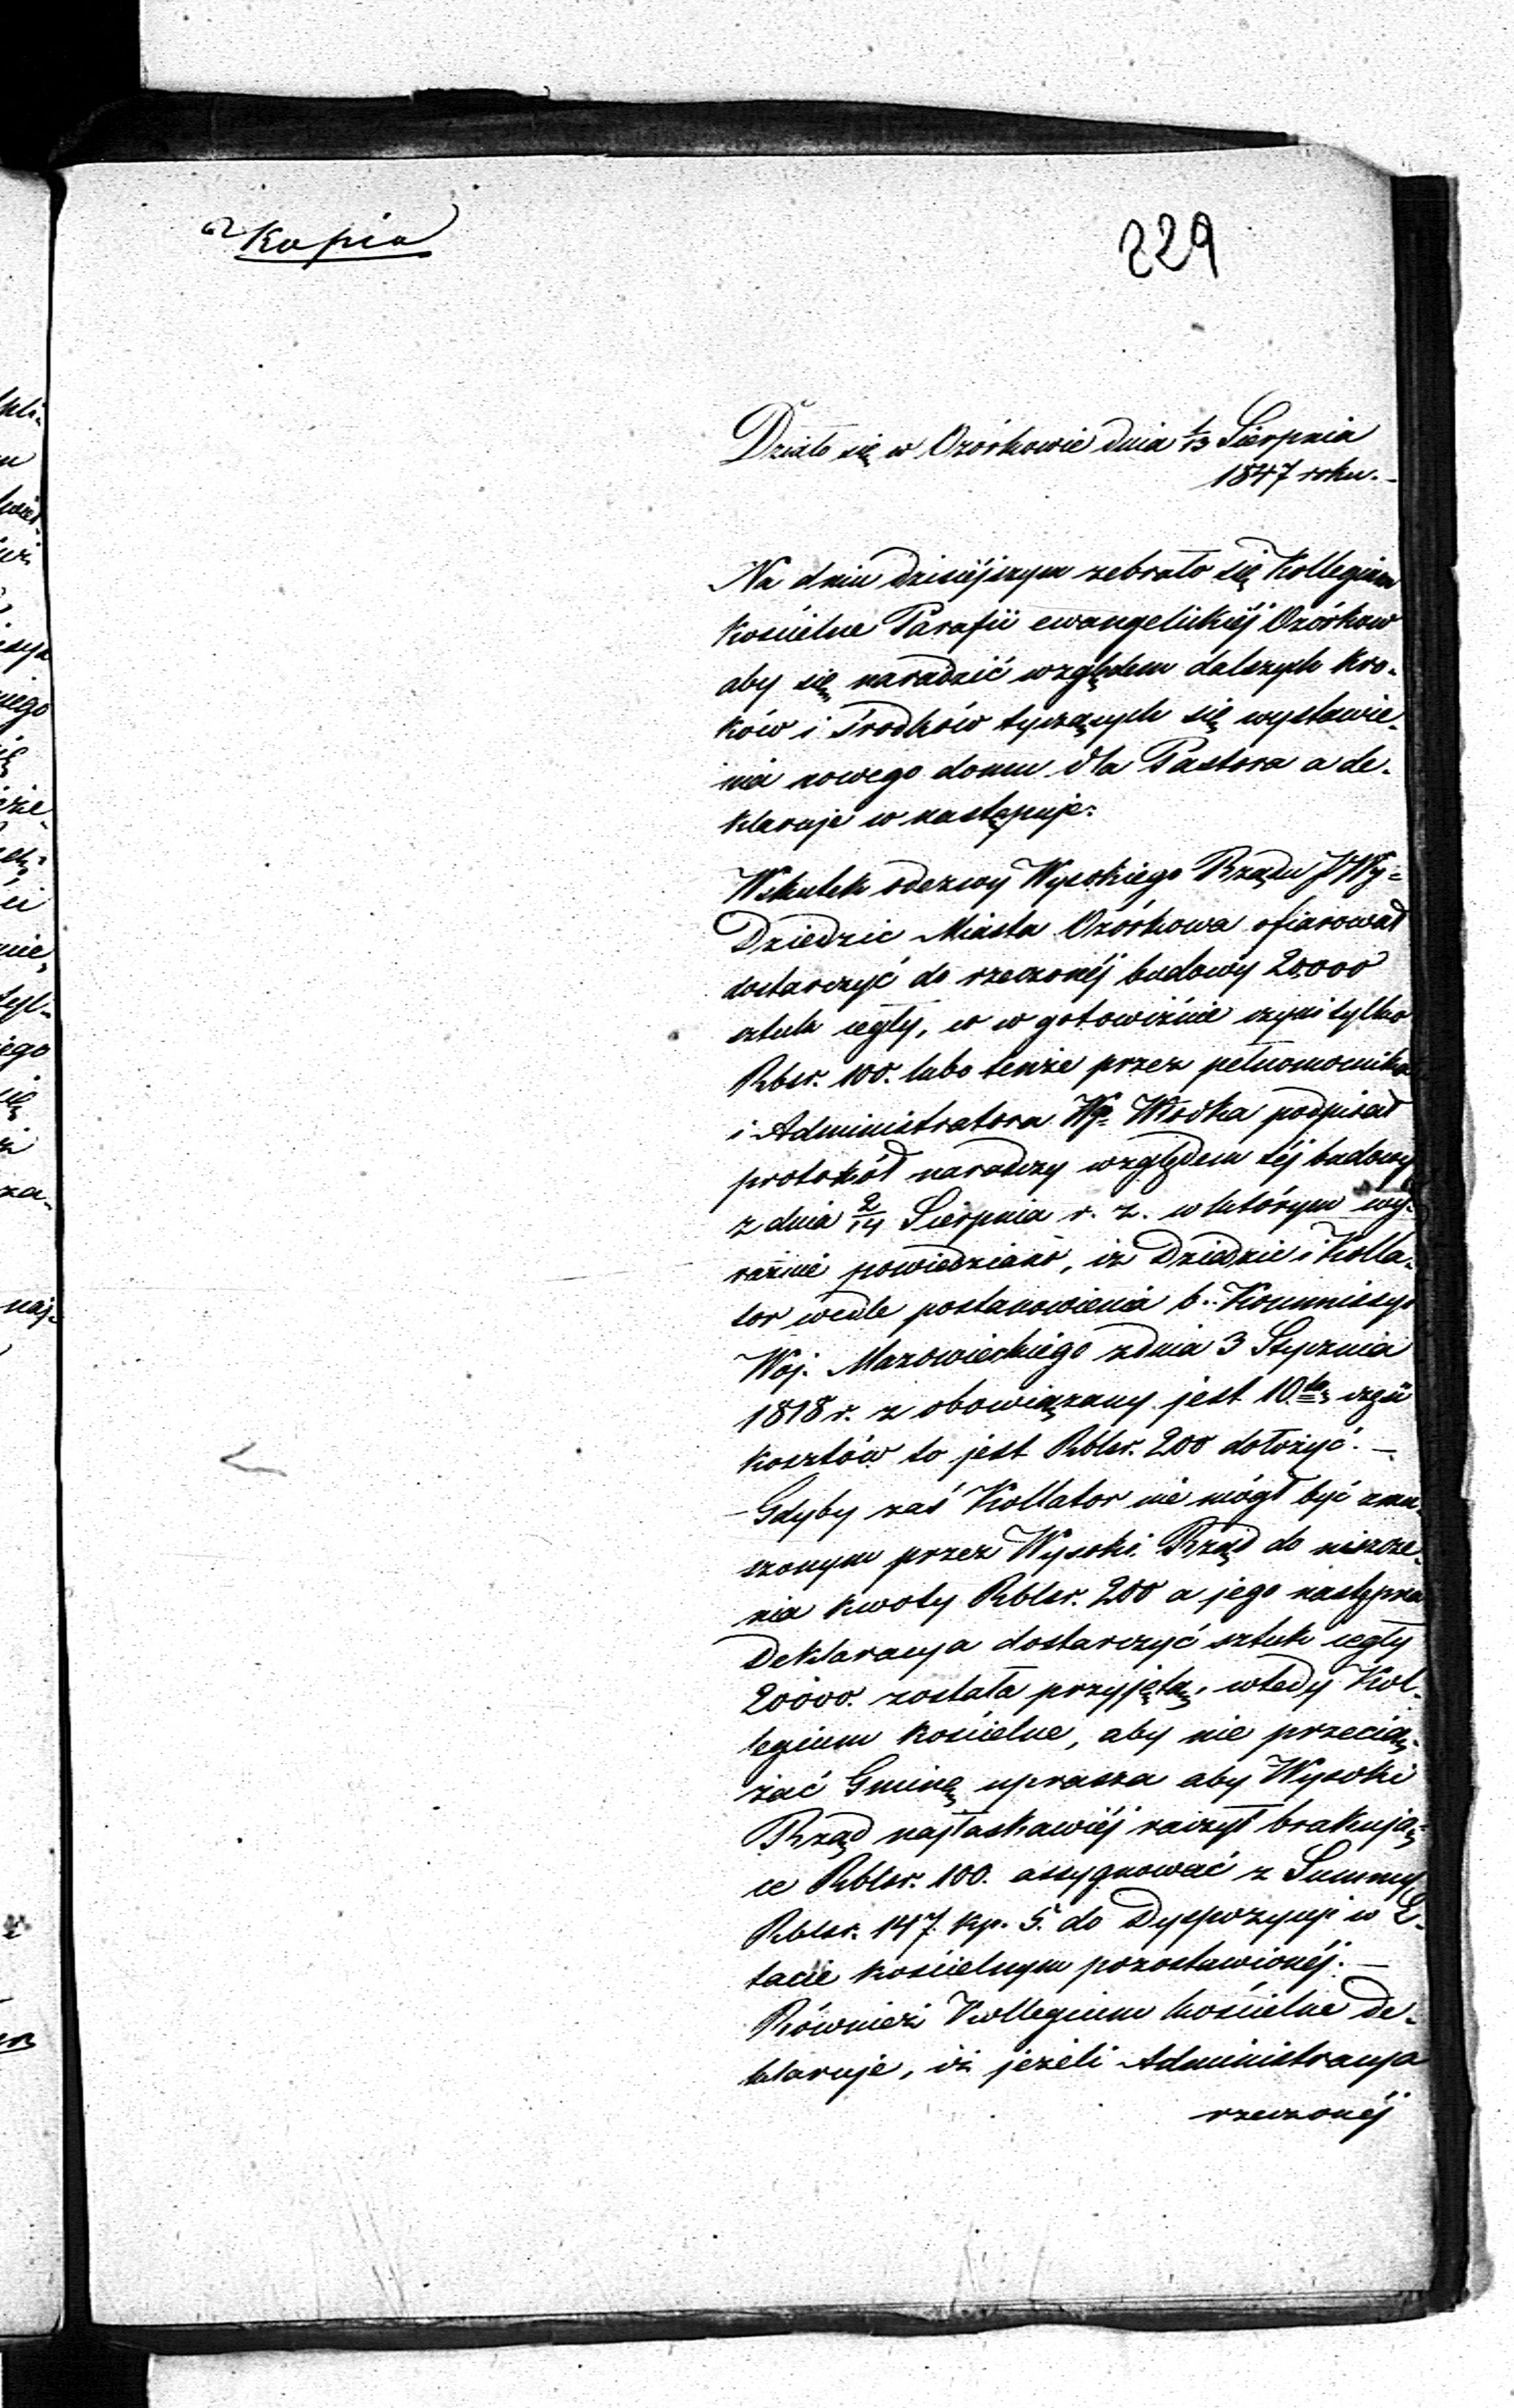 Kopia
229
Działo się w Ozorkowie dnia 1/13 Sierpnia
1847 roku.
Na dniu dzisiéjszym zebrało się Kollegium
Kościelne Parafii ewangelickiéj Ozórkow
aby się naradzić względem dalszych kro-
ków i środków tyczących się wystawie-
nia nowego domu dla Pastora a de-
klaruje w następuje:
Wskutek odezwy Wysokiego Rządu JWWy=
Dziedzic Miasta Ozórkowa ofiarował
dostarczyć do rzeczonéj budowy 20,000
sztuk cegły, co w gotowiźnie czyni tylko
Rbsr. 100. lubo tenże przez pełnomocnika
i Administratora Wgo Włodka podpisał
protokół naradczy względem téj budowy
z dnia 2/14 Sierpnia r. z. w którym wy-
raźnie powiedziano, iż Dziedzic i Kolla-
tor wedle postanowienia b. Kommissyi
Woj. Mazowieckiego z dnia 3 Stycznia
1818 r. z obowiązany jest 10tą częśi
kosztów to jest Rblsr. 200 dołożyć. —
— Gdyby zaś Kollator nie mógł być zmu-
szonym przez Wysoki Rząd do uiszcze-
nia kwoty Rblsr. 200 a jego następna
Deklaracya dostarczyć sztuk cegły
20000. została przyjętą, wtedy Kol-
legium kościelne, aby nie przecią-
żać Gminę uprasza aby Wysoki
Rząd najłaskawiéj raczył brakują-
ce Rblsr. 100. assygnować z Summy
Rblsr. 147. kp. 5. do Dyspozycyi w E-
tacie kościelnym pozostawionéj. —
Również Kollegium kościelne de-
klaruje, iż jeżeli Administracya
rzeczonéj